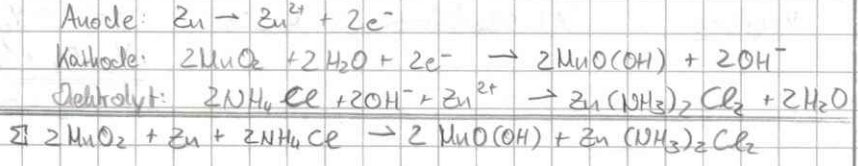 Anode: Zn → Zn²⁺ + 2e⁻
Kathode: 2MnO₂ + 2H₂O + 2e⁻ → 2MnO(OH) + 2OH⁻
Elektrolyt: 2NH₄Cl + 2OH⁻ + Zn²⁺ → Zn(NH₃)₂Cl₂ + 2H₂O
Σ 2MnO₂ + Zn + 2NH₄Cl → 2 MnO(OH) + Zn(NH₃)₂Cl₂